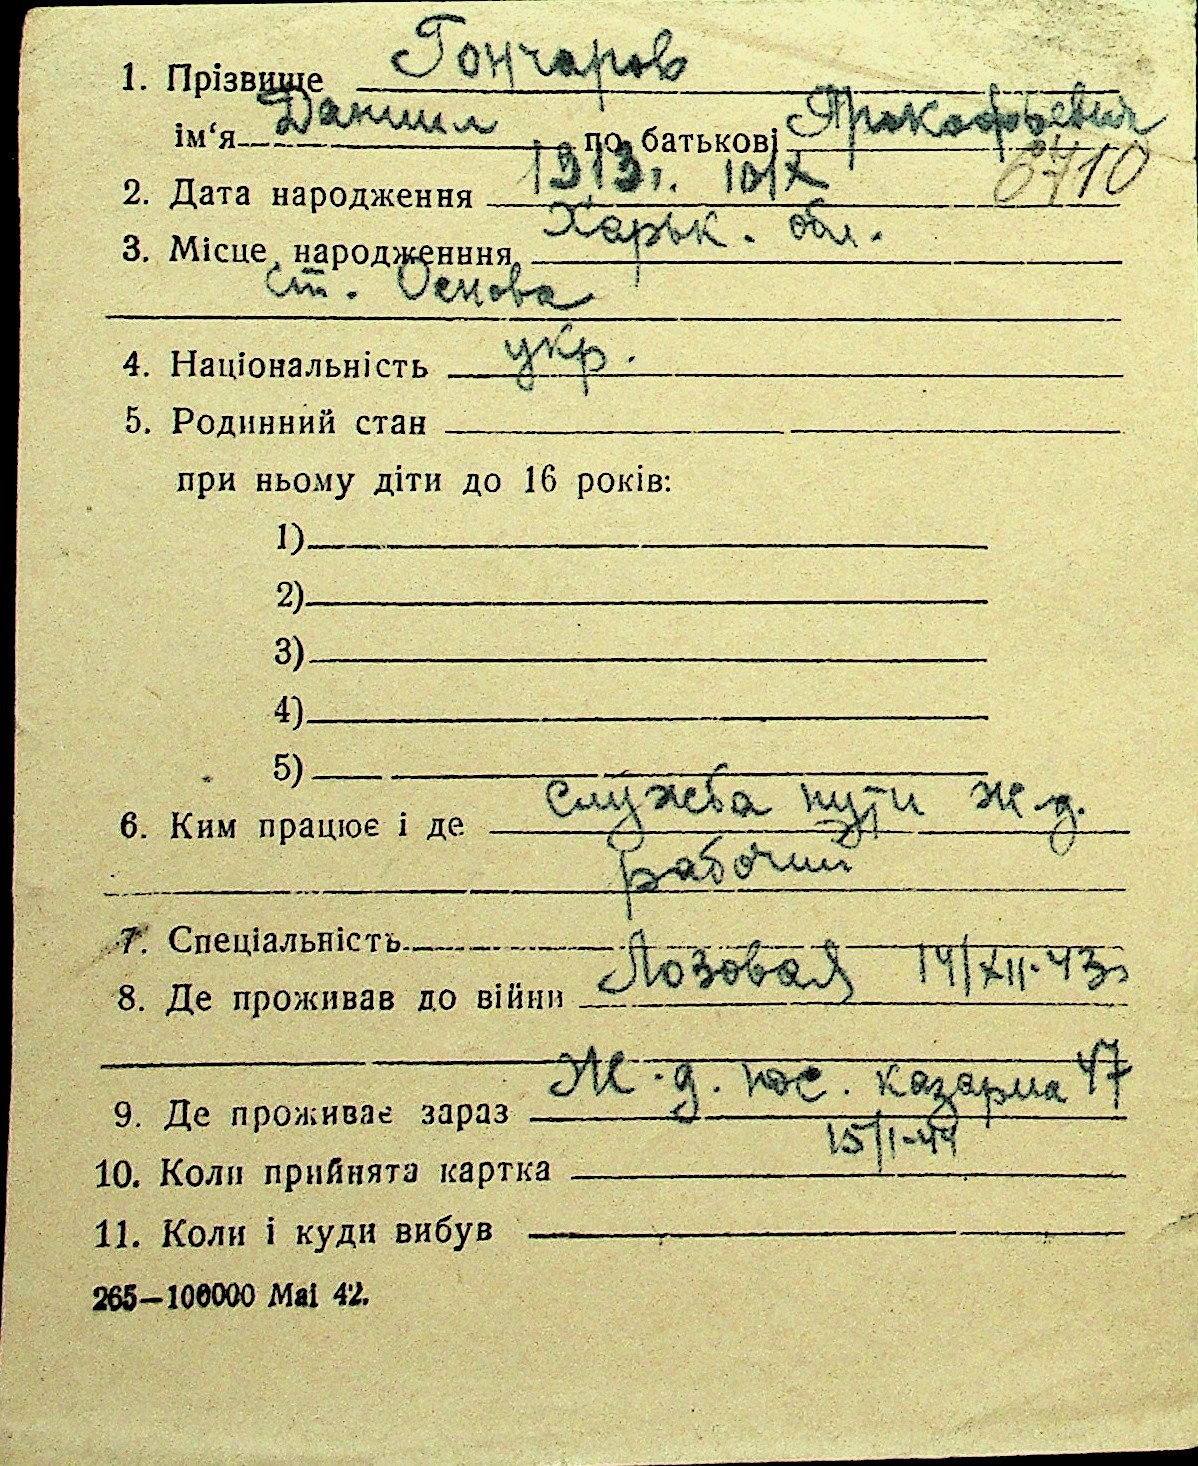 1. Прізвище Гончаров
ім‘я Даниил по батькові Прокофьевич
6710
2. Дата народження 1913г. 10/X
3. Місце народженння Харьк. обл.
ст. Основа
4. Національність укр.
5. Родинний стан
при ньому діти до 16 років:
1)
2)
3)
4)
5)
6. Ким працює і де служба пути ж.д.
рабочий
7. Спеціальність
8. Де проживав до війни Лозовая 14/XII-43г
9. Де проживає зараз Ж.д. пос. казарма 47
10. Коли прийнята картка 15/I-44
11. Коли і куди вибув
265—100000 Mai 42.